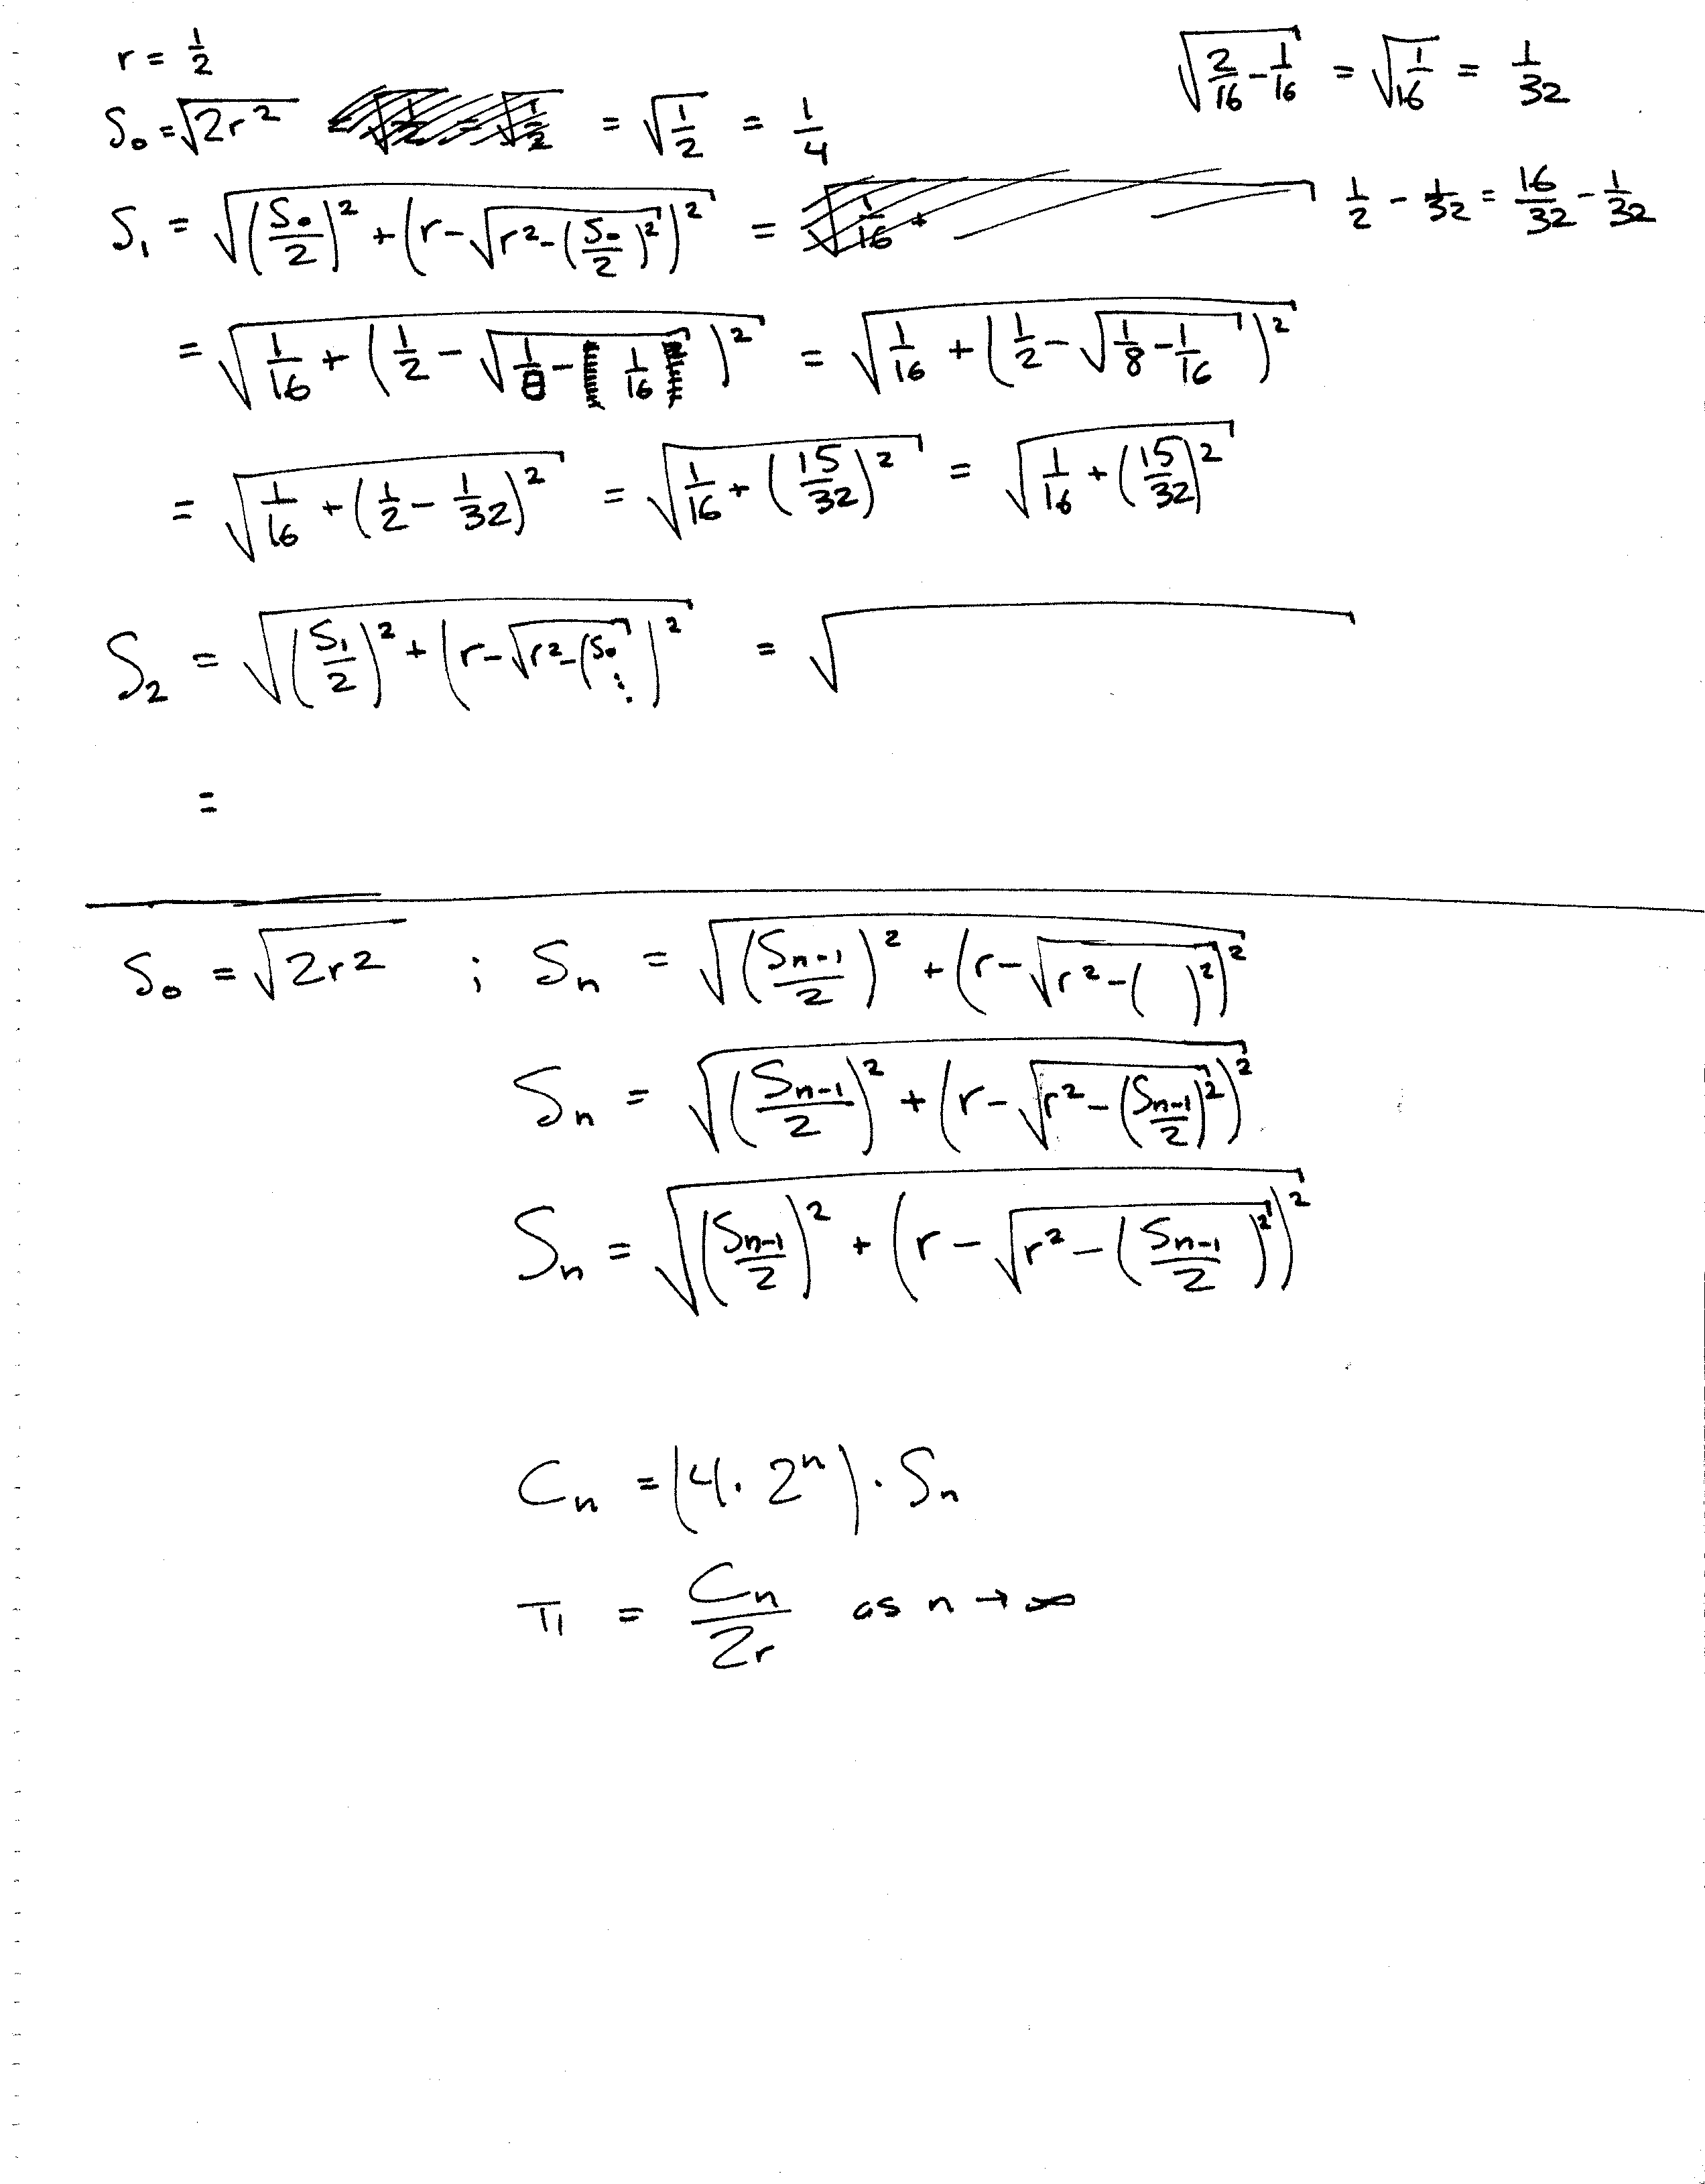 r = 1/2
√(2/16 - 1/16) = √(1/16) = 1/32
S₀ = √(2r²) = √(1/2) = 1/4
S₁ = √((S₀/2)² + (r - √(r² - (S₀/2)²))²) =
1/2 - 1/32 = 16/32 - 1/32
= √(1/16 + (1/2 - √(1/8 - 1/16))²) = √(1/16 + (1/2 - √(1/8 - 1/16))²)
= √(1/16 + (1/2 - 1/32)²) = √(1/16 + (15/32)²) = √(1/16 + (15/32)²)
S₂ = √((S₁/2)² + (r - √(r² - (S₀ ⋮)²) = √
=
S₀ = √(2r²) ; Sₙ = √((Sₙ₋₁/2)² + (r - √(r² - ( )²))²)
Sₙ = √((Sₙ₋₁/2)² + (r - √(r² - (Sₙ₋₁/2)²))²)
Sₙ = √((Sₙ₋₁/2)² + (r - √(r² - (Sₙ₋₁/2)²))²)
Cₙ = (4 · 2ⁿ) · Sₙ
π = Cₙ/2r as n → ∞